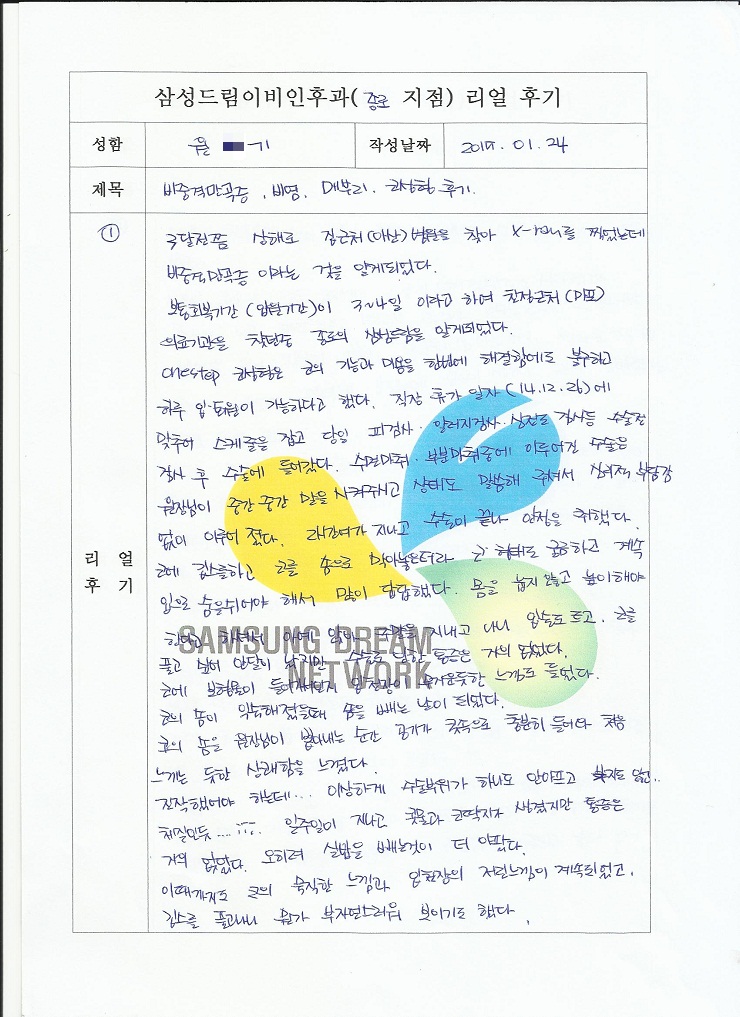 삼성드림이비인후과( 종로 지점) 리얼 후기
성함 윤 기 작성날짜 2015. 01. 24
제목 비중격만곡증, 비염, 매부리, 코성형 후기.
①
달전쯤 상해로 집근처(아산) 병원을 찾아 X-ray를 찍었는데
비중격만곡증 이라는 것을 알게되었다.
보통회복기간 (입원기간)이 3~4일 이라고 하여 친정근처 (마포)
의료기관을 찾던중 종로의 삼성드림을 알게되었다.
onestop 코성형은 코의 기능과 미용을 한번에 해결함에도 불구하고
하루 입·퇴원이 가능하다고 했다. 직장 휴가 일자 (14.12.26)에
맞추어 스케줄을 잡고 당일 피검사·알러지검사·심전도 검사등 수술전
검사 후 수술에 들어갔다. 수면마취·부분마취중에 이루어진 수술은
원장님이 중간 중간 말을 시켜주시고 상태도 말씀해 주셔서 심리적 부담감
없이 이루어 졌다. 2시간여가 지나고 수술이 끝나 안정을 취했다.
코에 깁스를하고 코를 솜으로 막아놓은터라 코 형태도 궁금하고 계속
입으로 숨을쉬어야 해서 많이 답답했다. 몸을 눕지 않고 높이해야
한다고 해서 아예 앉아 주말을 지내고 나니 입술도 트고, 코를
풀고 싶어 안달이 났지만 수술로 인한 통증은 거의 없었다.
코에 보형물이 들어가서인지 앞천장이 무거운듯한 느낌도 들었다.
코의 솜이 익숙해 졌을때 솜을 빼는 날이 되었다.
코의 솜을 원장님이 뽑아내는 순간 공기가 콧속으로 충분히 들어와 처음
느끼는 듯한 상쾌함을 느꼈다.
진작했어야 하는데... 이상하게 수술부위가 하나도 안아프고 붓지도 않는..
체질인듯.... ;;;. 일주일이 지나고 콧물과 코딱지가 생겼지만 통증은
거의 없었다. 오히려 실밥을 빼는것이 더 아팠다.
이때까지도 코의 묵직한 느낌과 입천장의 저린느낌이 계속되었고,
깁스를 풀고나니 뭔가 부자연스러워 보이기도 했다.
리 얼
후 기
SAMSUNG DREAM
NETWORK